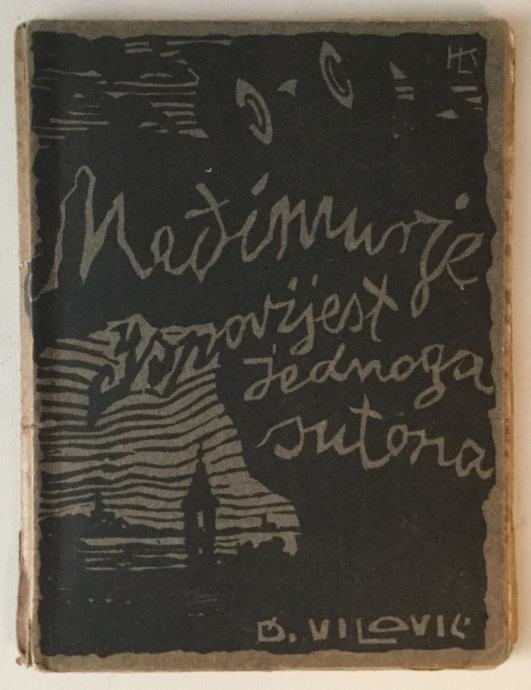 HK
Međimurje
Ispovijest
jednoga
sutona
Đ. VILOVIĆ